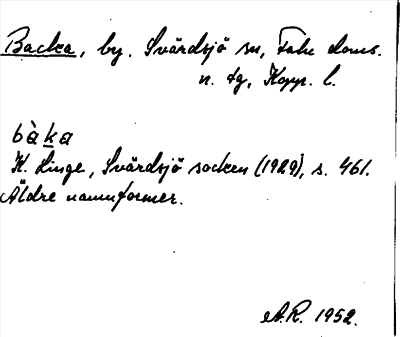 Backa, by. Svärdsjö sn, Falu doms.
n. tg, Kopp. l.
bàka
K. Linge, Svärdsjö socken (1929), s. 461.
Äldre namnformer.
A.R. 1952.